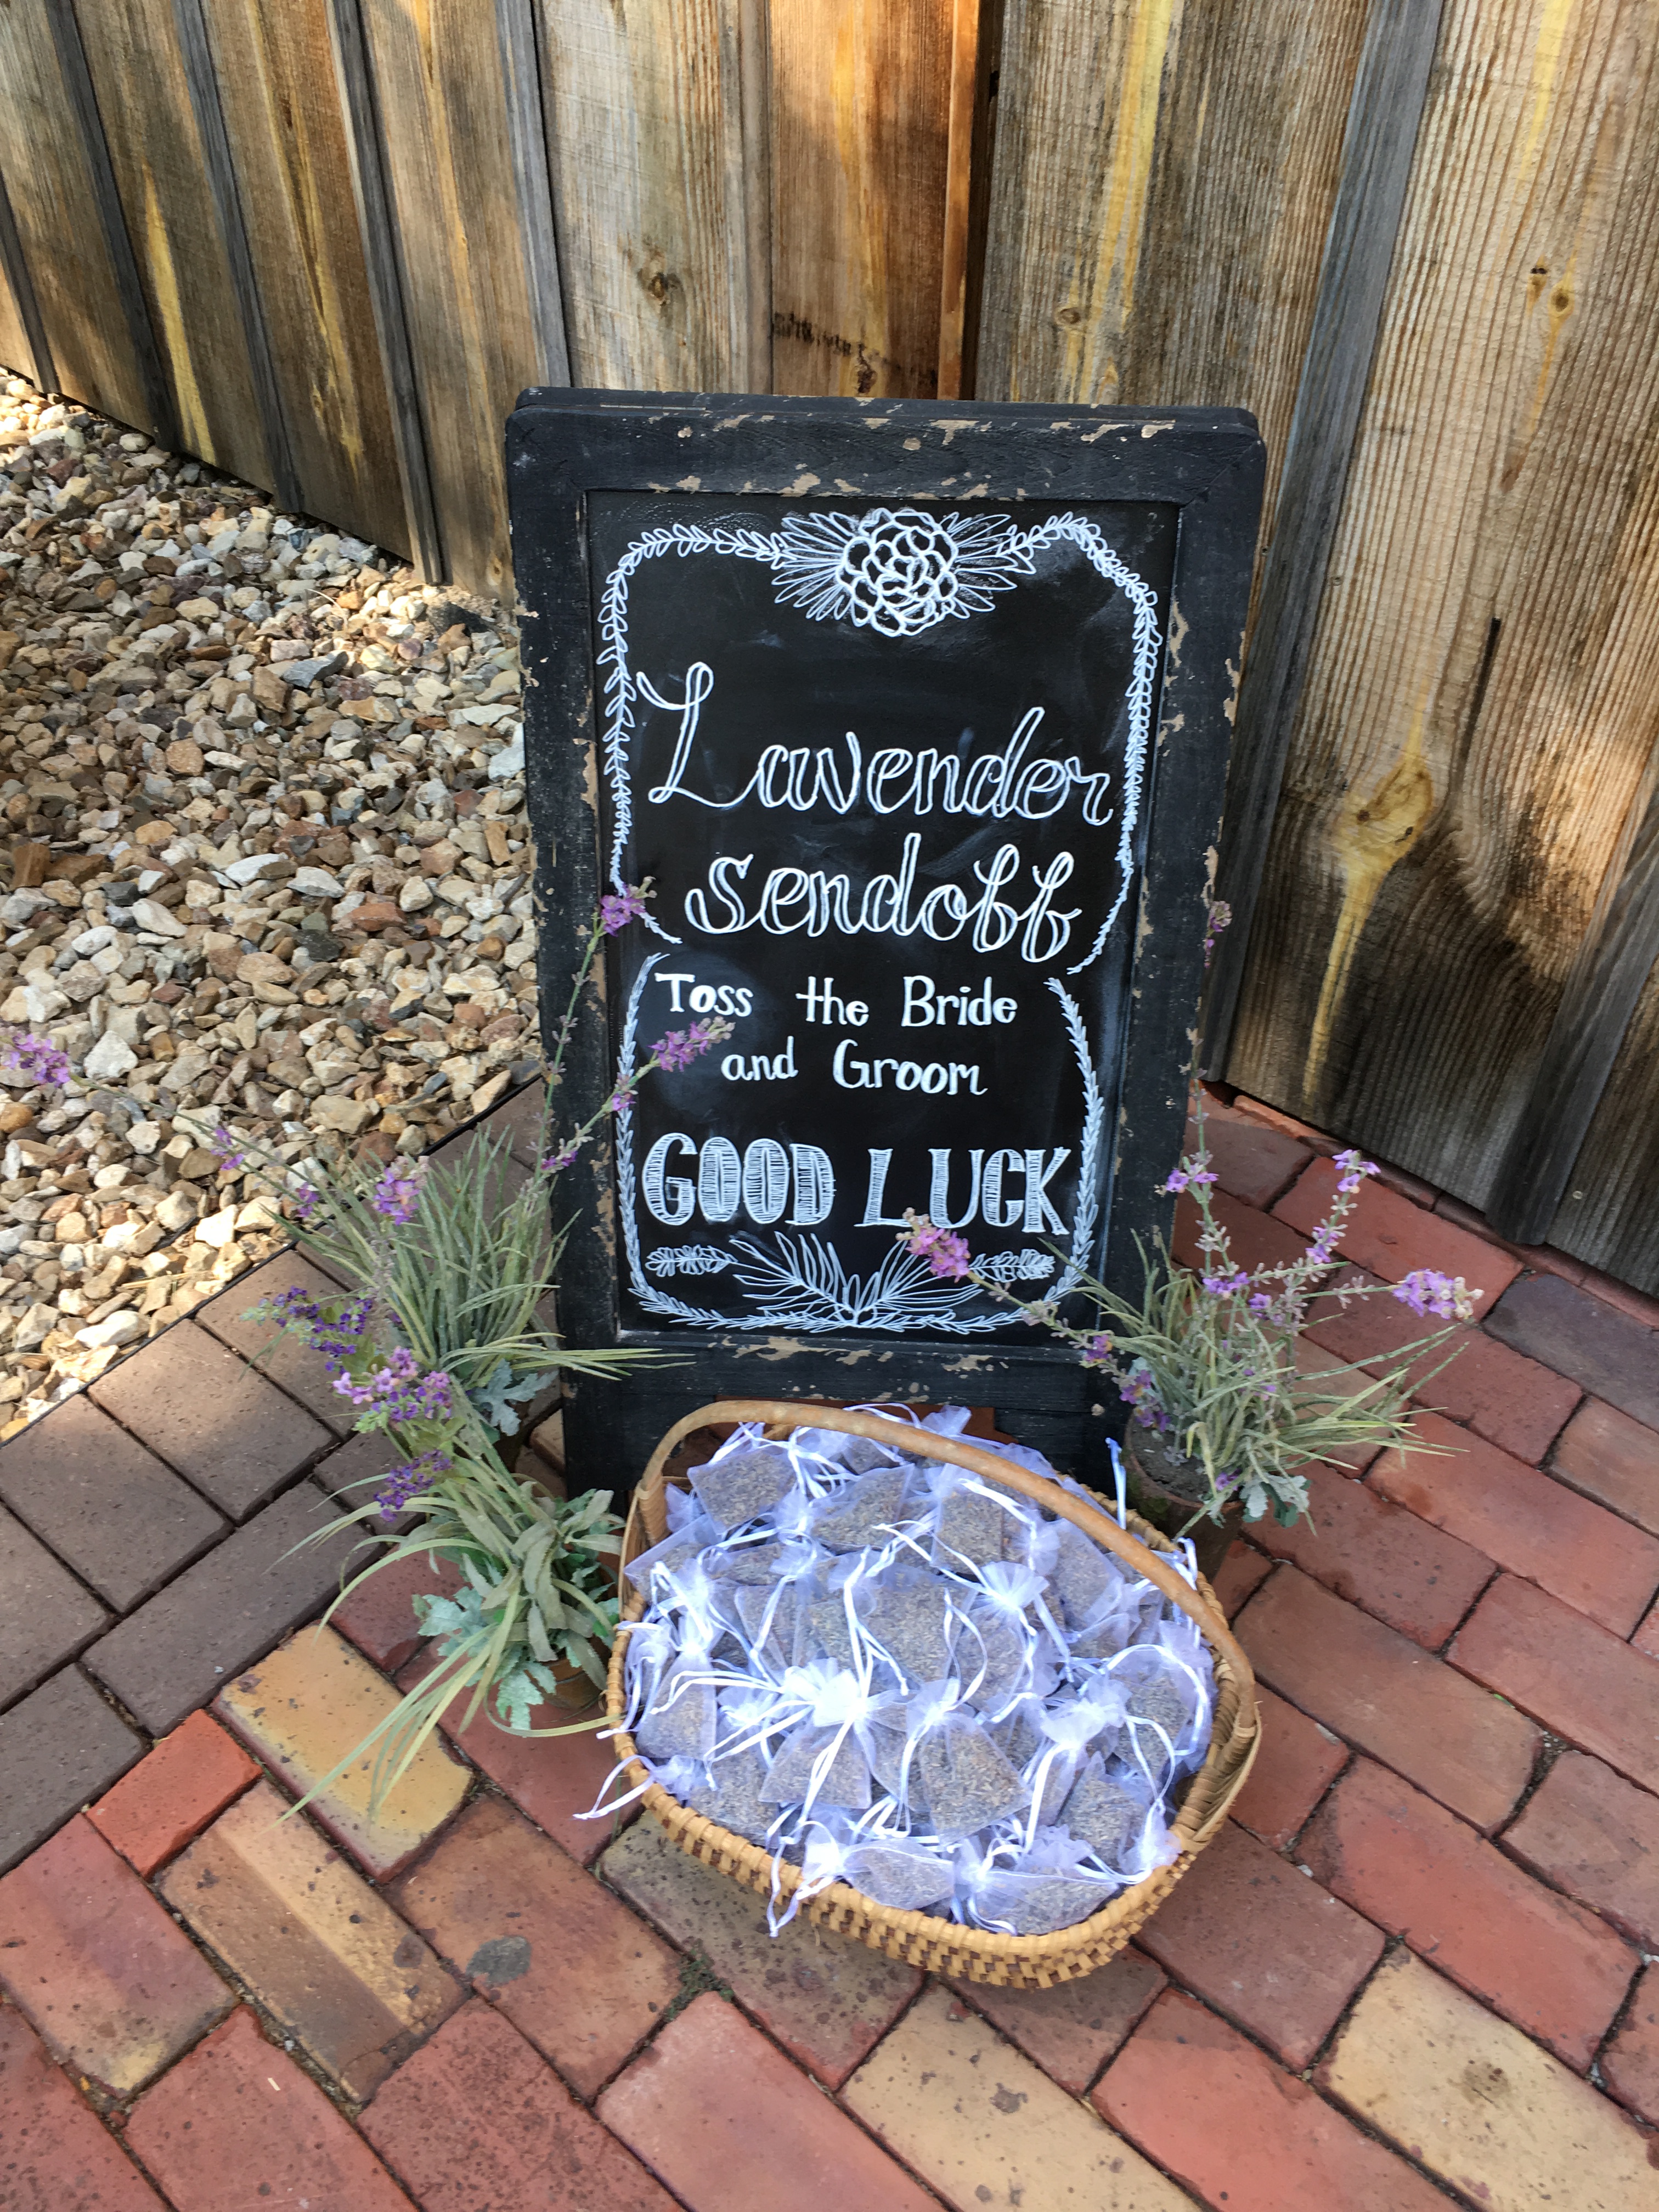 Lavender
sendoff
Toss the Bride
and Groom
GOOD LUCK